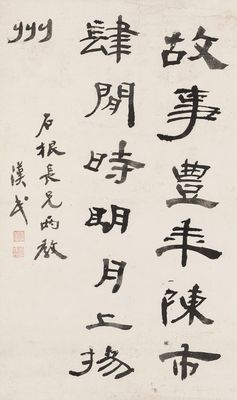 故事豊年陳市
肆閒時明月上揚
州
石根長兄両教
漢民